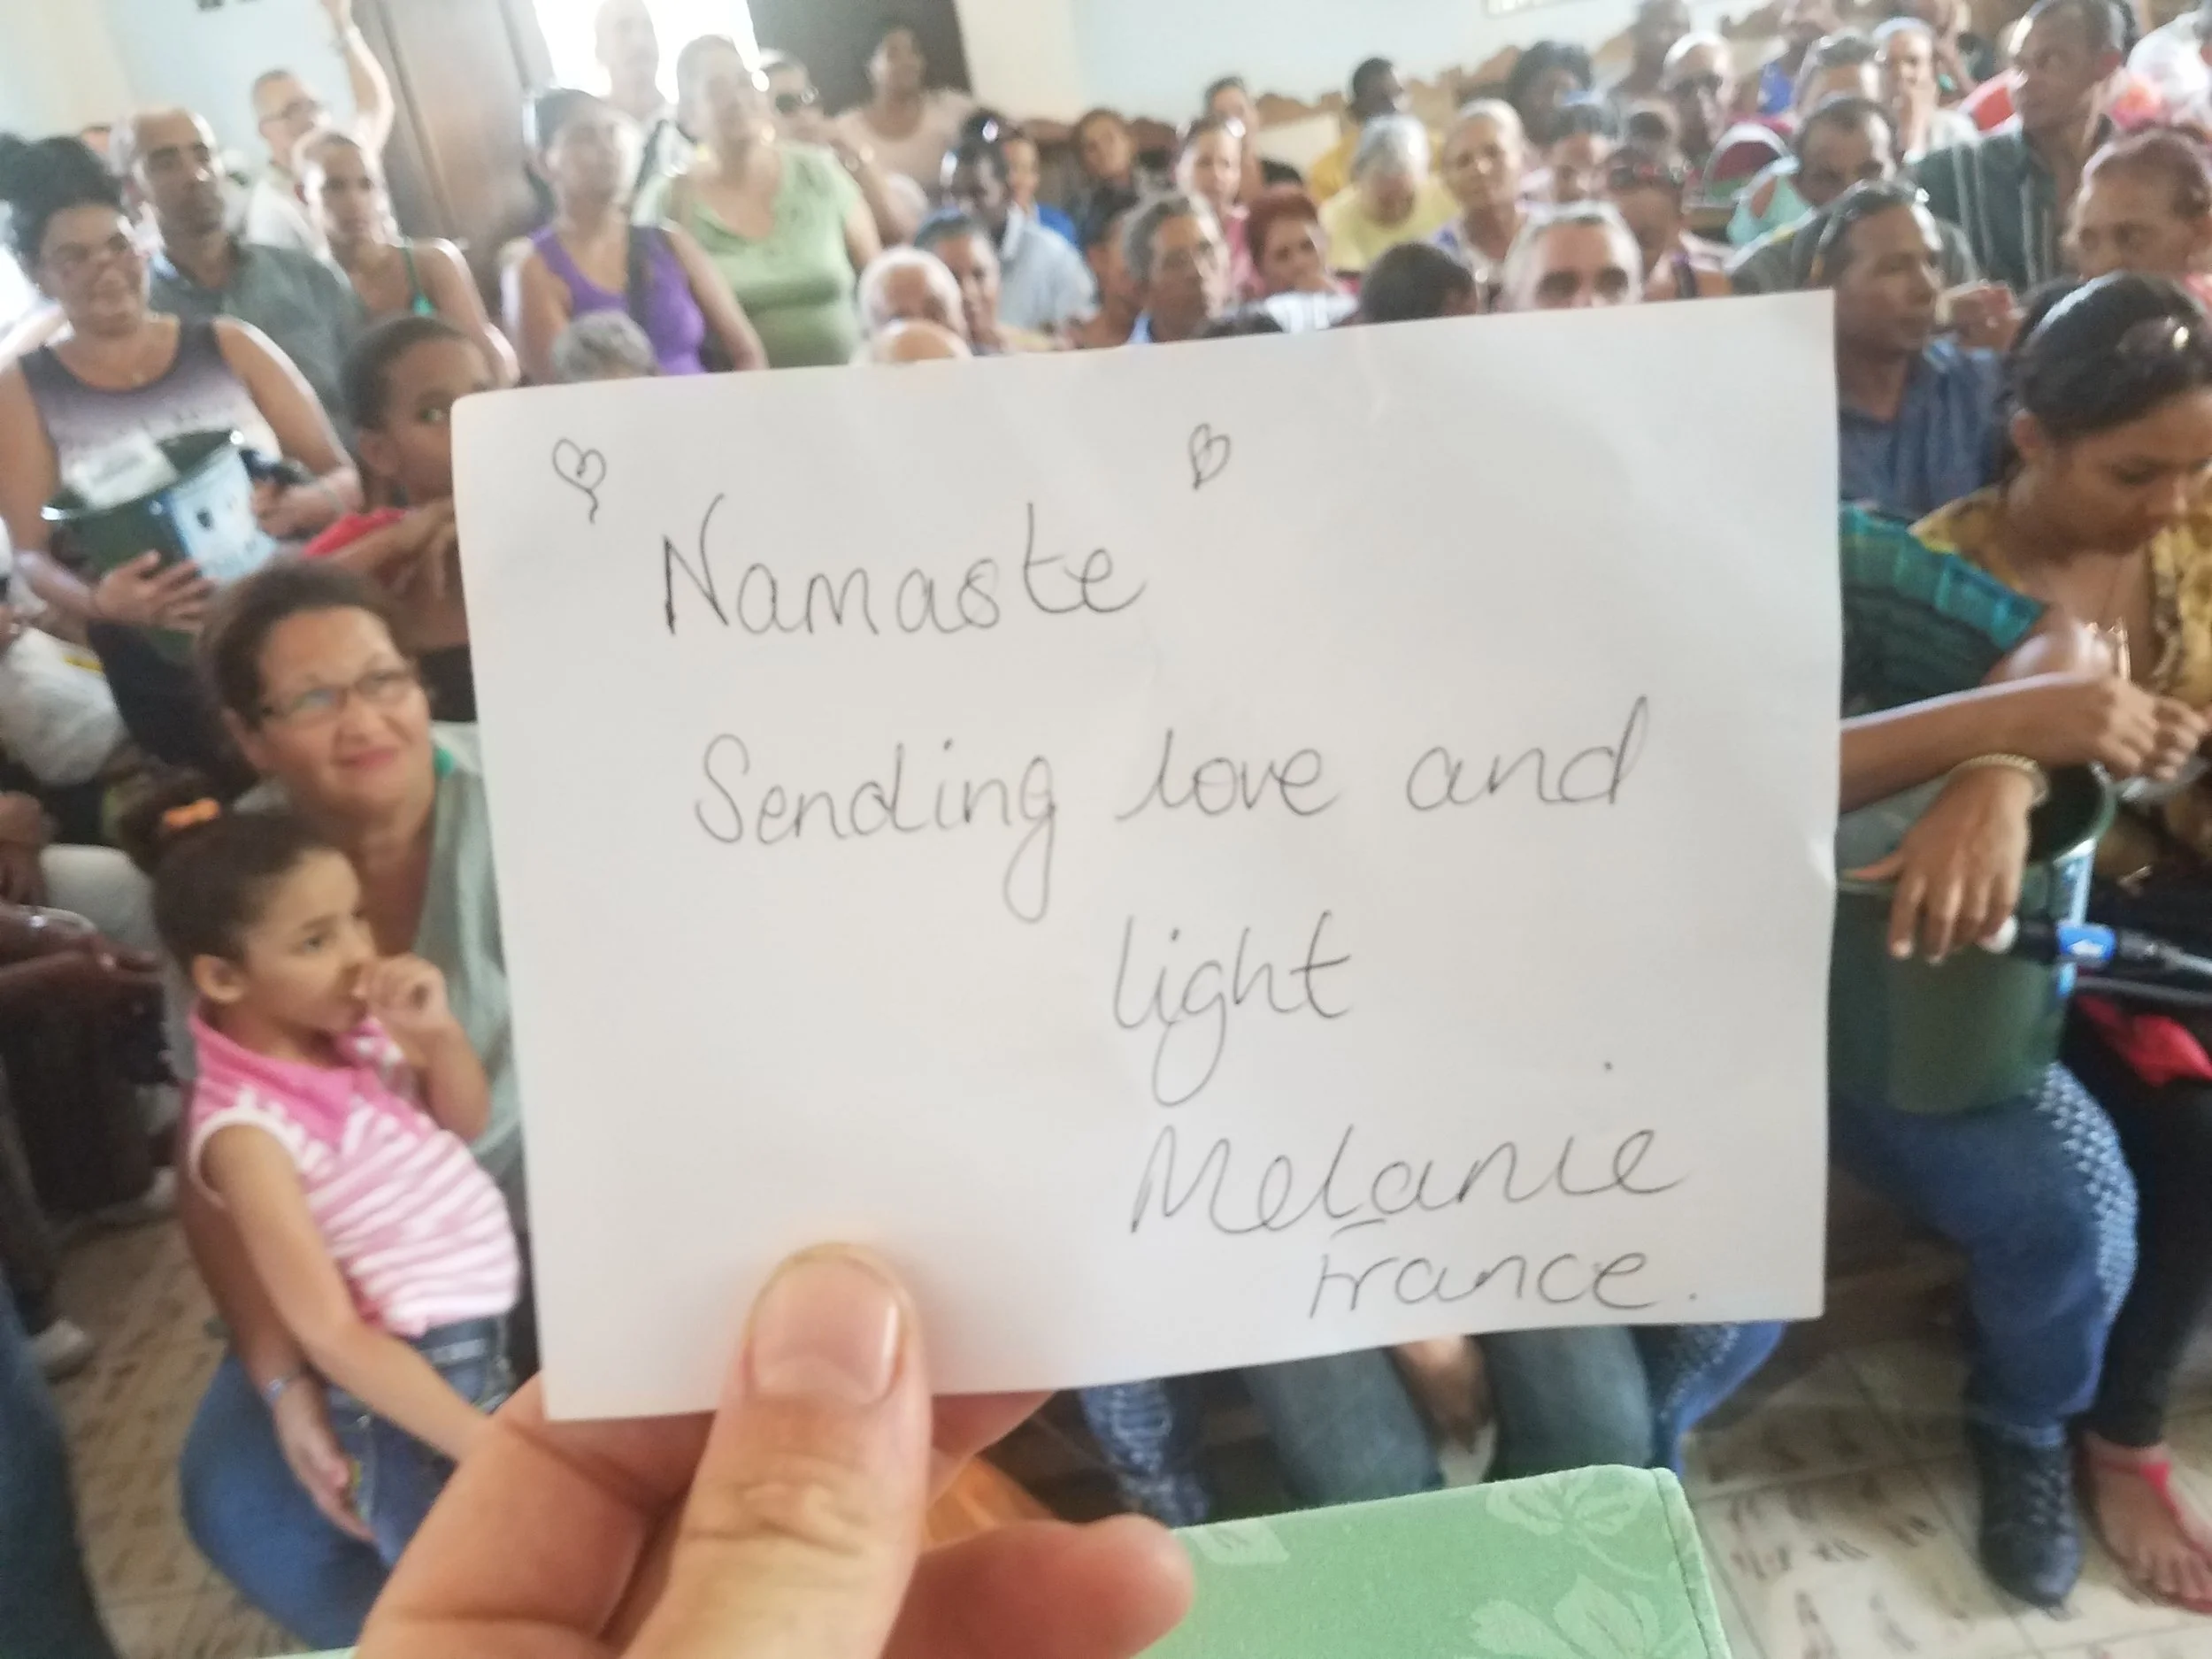 Namaste
Sending love and
light
Melanie
France.